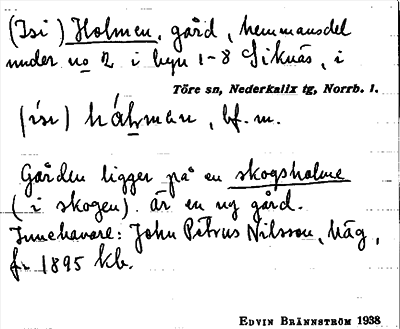 (Isi) Holmen, gård, hemmansdel
under no 2 i byn 1-8 Siknäs, i
Töre sn, Nederkalix tg, Norrb. l.
(ísı) hólman, bf. m.
Gården ligger på en skogsholme
(i skogen). är en ny gård.
Innehavare: John Petrus Nilsson, häg,
f. 1895 kb.
EDVIN BRÄNNSTRÖM 1938